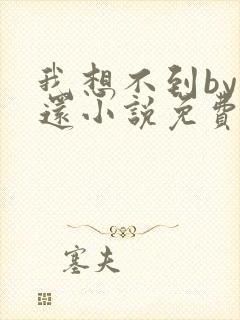 我想不到by
還小說免費
塞夫